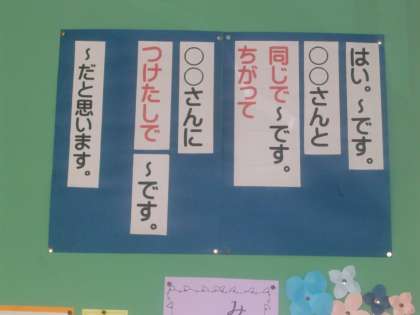 はい。〜です。
○○さんと
同じで〜です。
ちがって
○○さんに
つけたしで
〜です。
〜だと思います。
み